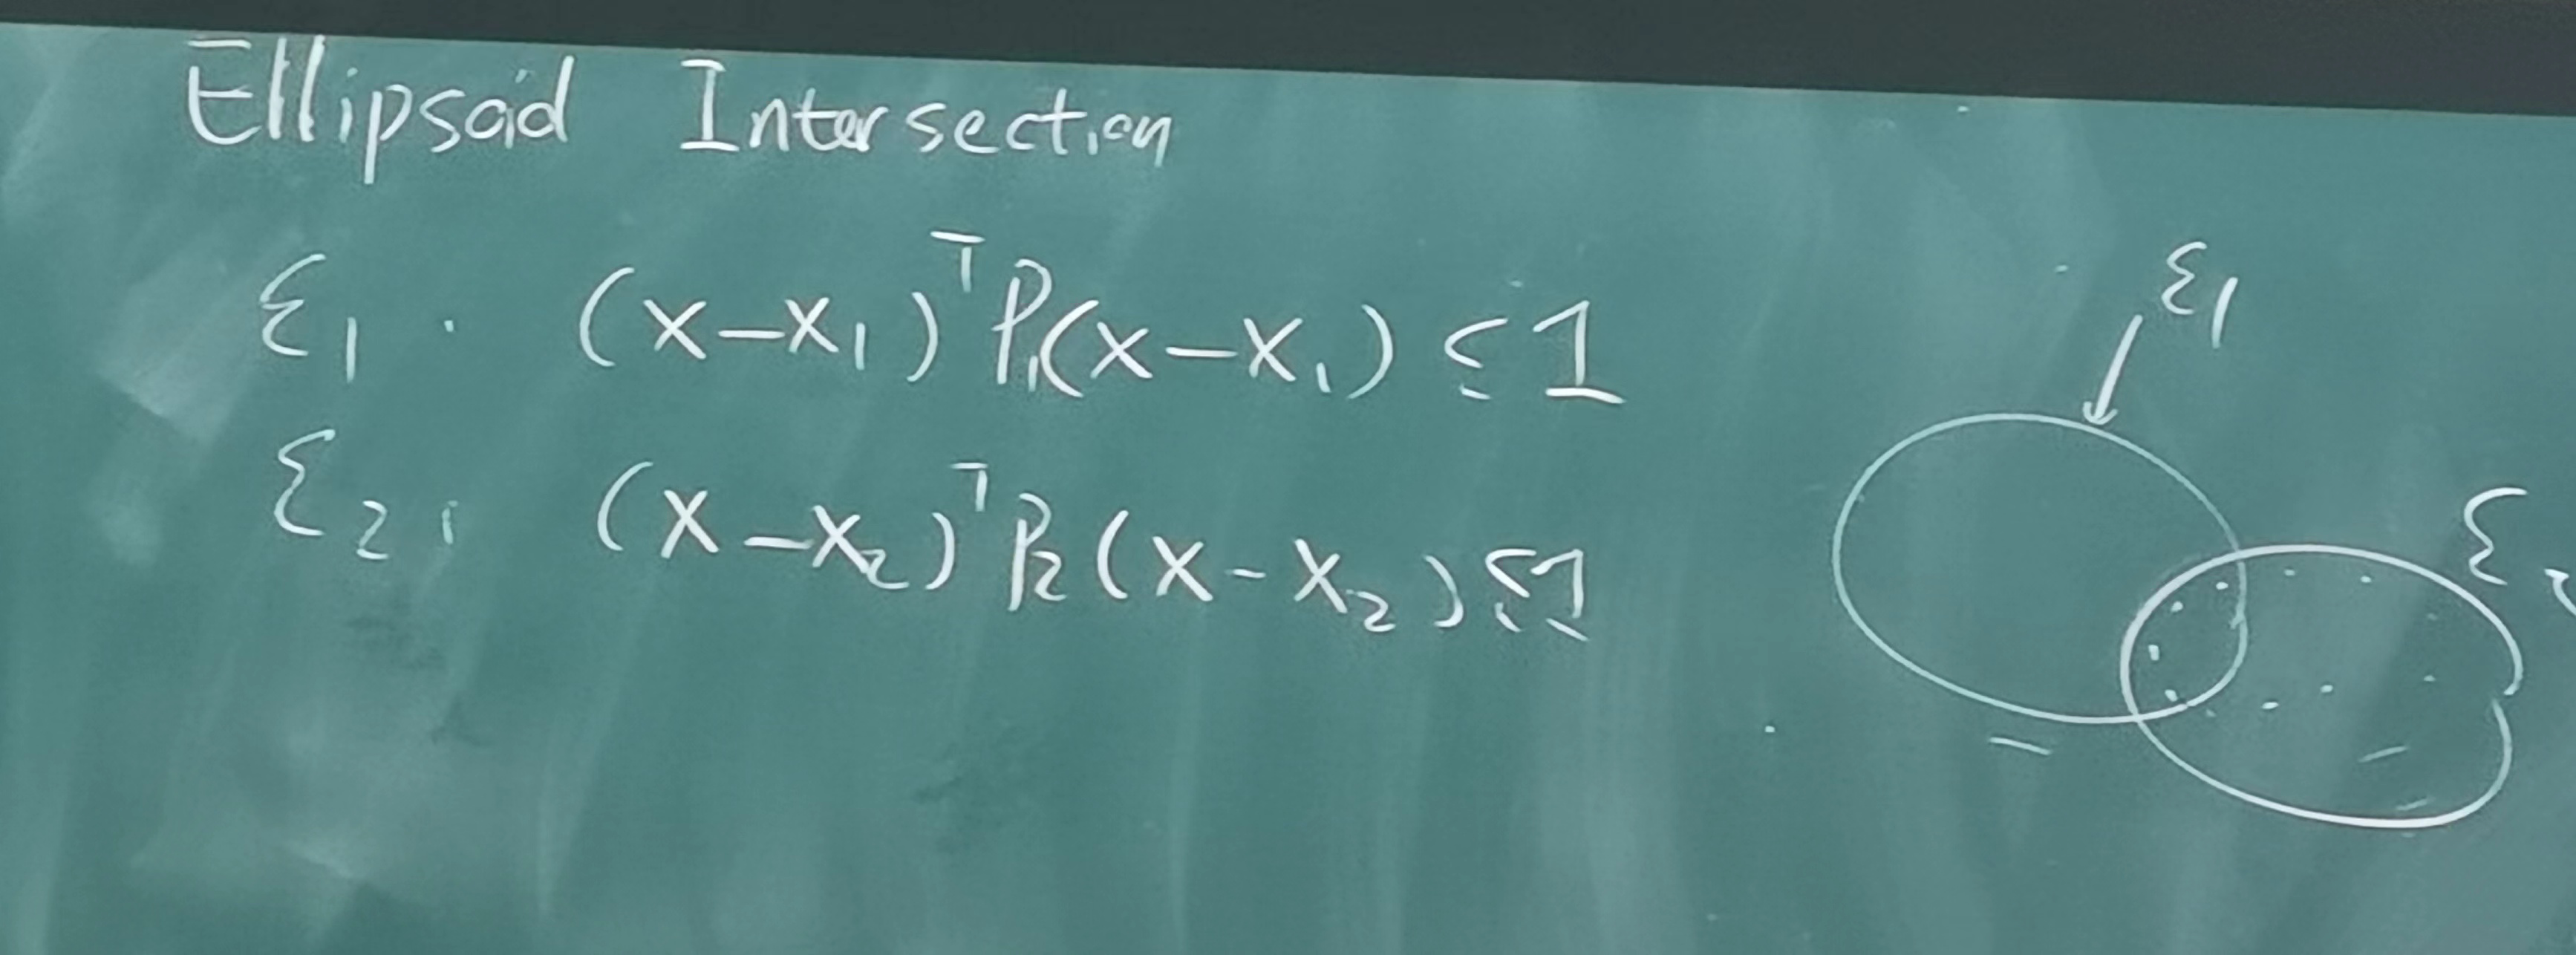 Ellipsoid Intersection
ε₁. (x-x₁)ᵀP₁(x-x₁) ≤ 1
ε₂, (x-x₂)ᵀP₂(x-x₂) ≤ 1
ε₁
ε₂